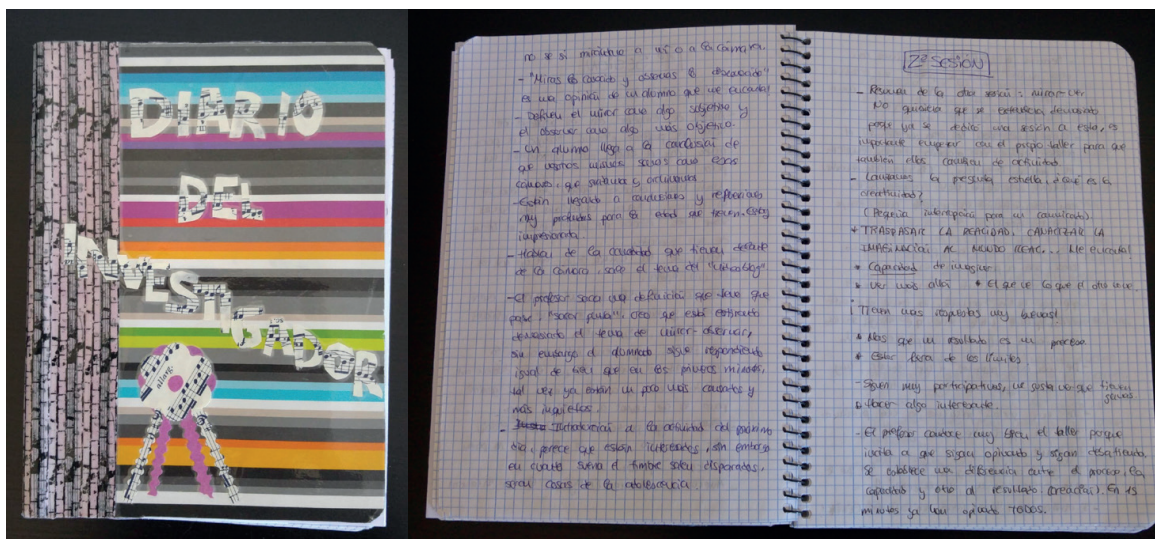 DIARIO
DEL
INVESTIGADOR
allarg.
no se si mirándome a mí o a la cámara.
- "Miras lo conocido y observas lo desconocido"
es una opinión de un alumno que me encanta!
- Definen el mirar como algo subjetivo y
el observar como algo más objetivo.
- Un alumno llega a la conclusión de
que nosotros mismos somos como esas
cámaras, que
- Están llegando a conclusiones y reflexiones
muy profundas para la edad que tienen. Estoy
impresionada.
- Hablan de la cantidad que tienen delante
de la cámara, sale el tema del "videoblog".
- El profesor saca una definición que tiene que
poner "sacar punta". Creo que está estirando
demasiado el tema de mirar-observar,
sin embargo el alumnado sigue respondiendo
igual de bien que en los primeros minutos,
tal vez ya están un poco más cansados y
más inquietos.
- Introducción a la actividad del próximo
día, parece que están interesados, sin embargo
en cuanto suena el timbre salen disparados,
serán cosas de la adolescencia.
2ª SESIÓN
- Resumen de la otra sesión: mirar-ver
No quisiera que se extendiera demasiado
porque ya se dedicó una sesión a esto, es
importante empezar con el propio taller para que
también ellos cambien de actividad.
- Lanzamos la pregunta estrella: ¿qué es la
creatividad?
(Pequeña interrupción para un comunicado)
* TRASPASAR LA REALIDAD, CANALIZAR LA
IMAGINACIÓN AL MUNDO REAL... Me encanta!
* Capacidad de imaginar.
* Ver más allá * El que ve lo que el otro no ve.
¡Tienen unas respuestas muy buenas!
* Más que un resultado es un proceso
* Estar fuera de los límites
- Siguen muy participativos, me gusta veo que tienen
ganas.
* Hacer algo interesante.
- El profesor conduce muy bien el taller porque
invita a que sigan opinando y sigan
Se establece una diferencia entre el proceso, la
capacidad y otro al resultado (creación). En 15
minutos ya han opinado TODOS.